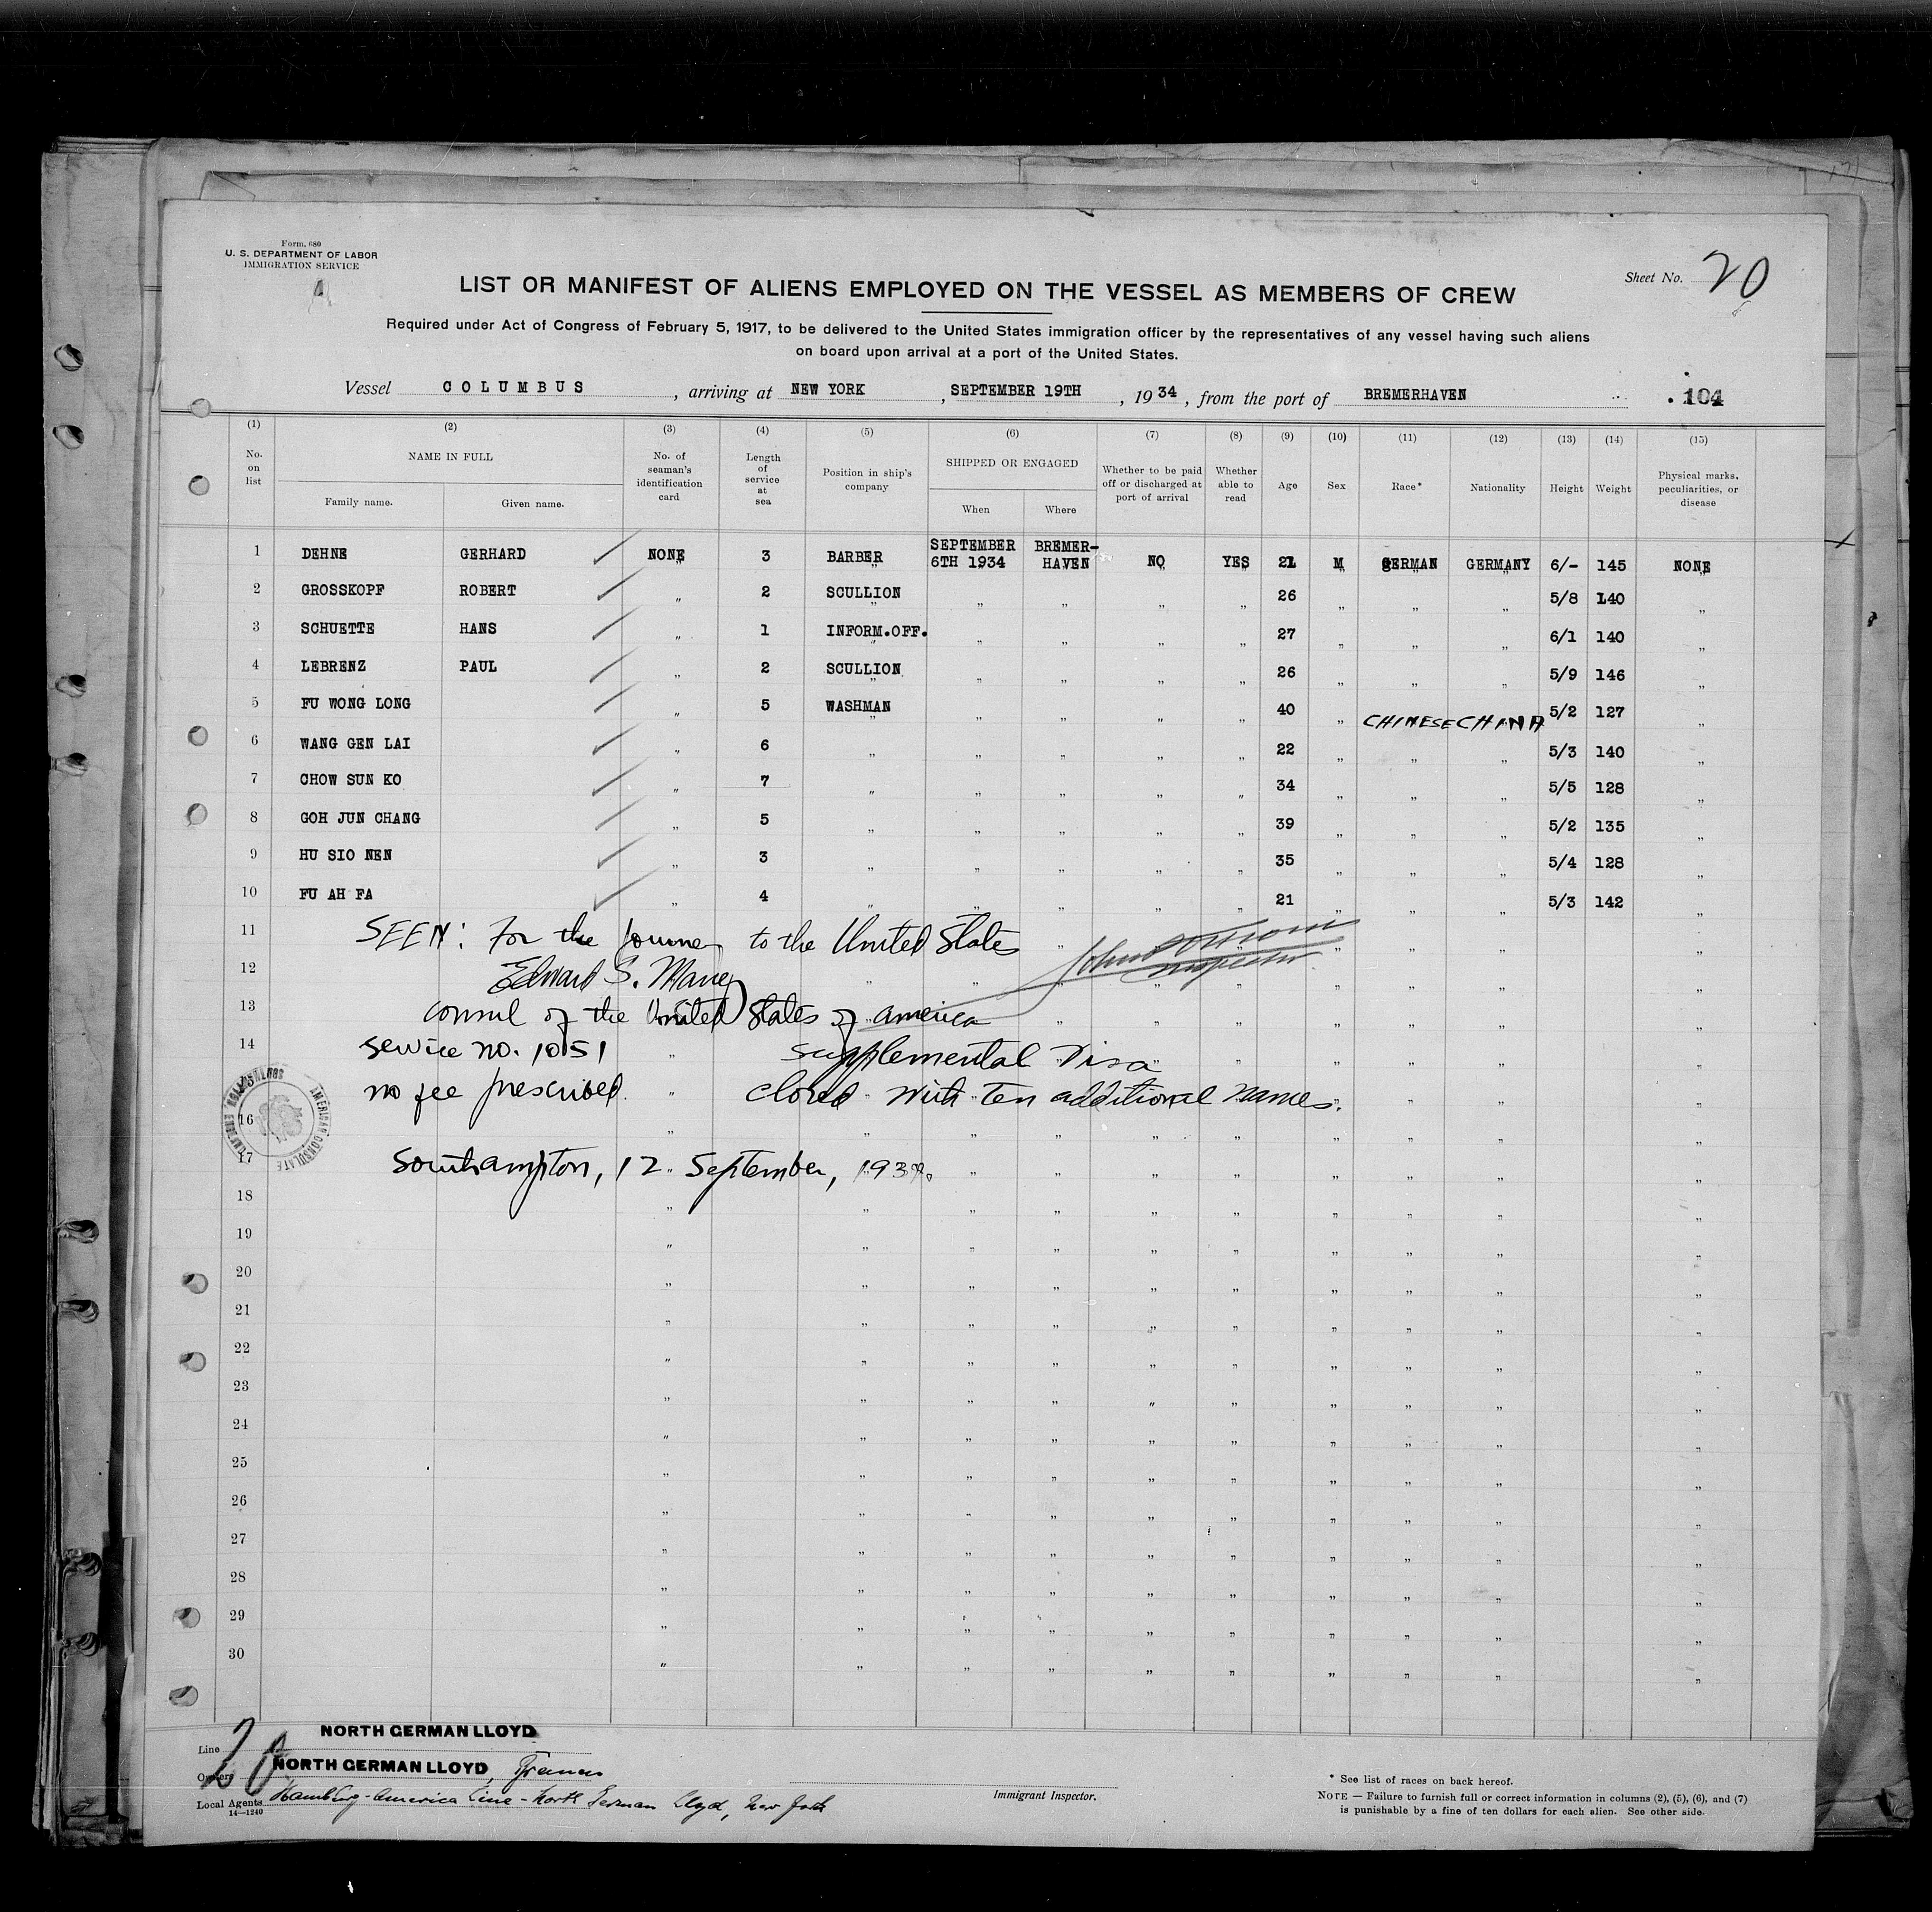 Form 680
U. S. DEPARTMENT OF LABOR
IMMIGRATION SERVICE
Sheet No. 20
LIST OR MANIFEST OF ALIENS EMPLOYED ON THE VESSEL AS MEMBERS OF CREW
Required under Act of Congress of February 5, 1917, to be delivered to the United States immigration officer by the representatives of any vessel having such aliens
on board upon arrival at a port of the United States.
Vessel COLUMBUS, arriving at NEW YORK, SEPTEMBER 19TH, 1934, from the port of BREMERHAVEN 104
(1) (2) (3) (4) (5) (6) (7) (8) (9) (10) (11) (12) (13) (14) (15)
No. on list NAME IN FULL Family name. Given name. No. of seaman's identification card Length of service at sea Position in ship's company SHIPPED OR ENGAGED When Where Whether to be paid off or discharged at port of arrival Whether able to read Age Sex Race* Nationality Height Weight Physical marks, peculiarities, or disease
1 DEHNE GERHARD NONE 3 BARBER SEPTEMBER 6TH 1934 BREMER-HAVEN NO YES 21 M GERMAN GERMANY 6/- 145 NONE
2 GROSSKOPF ROBERT " 2 SCULLION " " " " 26 " " " 5/8 140 "
3 SCHUETTE HANS " 1 INFORM.OFF. " " " " 27 " " " 6/1 140 "
4 LEBRENZ PAUL " 2 SCULLION " " " " 26 " " " 5/9 146 "
5 FU WONG LONG " 5 WASHMAN " " " " 40 " CHINESE CHINA 5/2 127 "
6 WANG GEN LAI " 6 " " " " " 22 " " " 5/3 140 "
7 CHOW SUN KO " 7 " " " " " 34 " " " 5/5 128 "
8 GOH JUN CHANG " 5 " " " " " 39 " " " 5/2 135 "
9 HU SIO NEN " 3 " " " " " 35 " " " 5/4 128 "
10 FU AH FA " 4 " " " " " 21 " " " 5/3 142 "
11 SEEN: For the Journey to the United States
Inspector
12 Edward S. Maney
13 Consul of the United States of America
14 Service no. 1051 Supplemental Visa
no fee prescribed. Closed with Ten additional names.
AMERICAN CONSULATE
16
17 Southampton, 12 September, 1934.
18
19
20
21
22
23
24
25
26
27
28
29
30
Line NORTH GERMAN LLOYD
20
Owners NORTH GERMAN LLOYD, Bremen
Local Agents Hamburg-America Line - North German Lloyd, New York
14—1240
Immigrant Inspector.
* See list of races on back hereof.
NOTE — Failure to furnish full or correct information in columns (2), (5), (6), and (7)
is punishable by a fine of ten dollars for each alien. See other side.